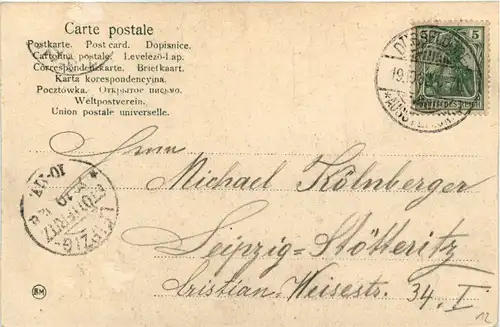 Carte postale
Postkarte. Post card. Dopisnice.
Cartolina postale. Levelező-Lap.
Correspondenzkarte. Briefkaart.
Karta korespondencyjna.
Pocztówka. Открытое письмо.
Weltpostverein.
Union postale universelle.
DÜSSELDO
5
19.10.
*AUSSTELLUNG
DEUTSCHES REICH
Herrn
Michael Kölnberger
Leipzig-Stötteritz
Cristian-Weisestr. 34. I
LEIPZIG-
STÖTTERITZ
10-11V.
BM
12